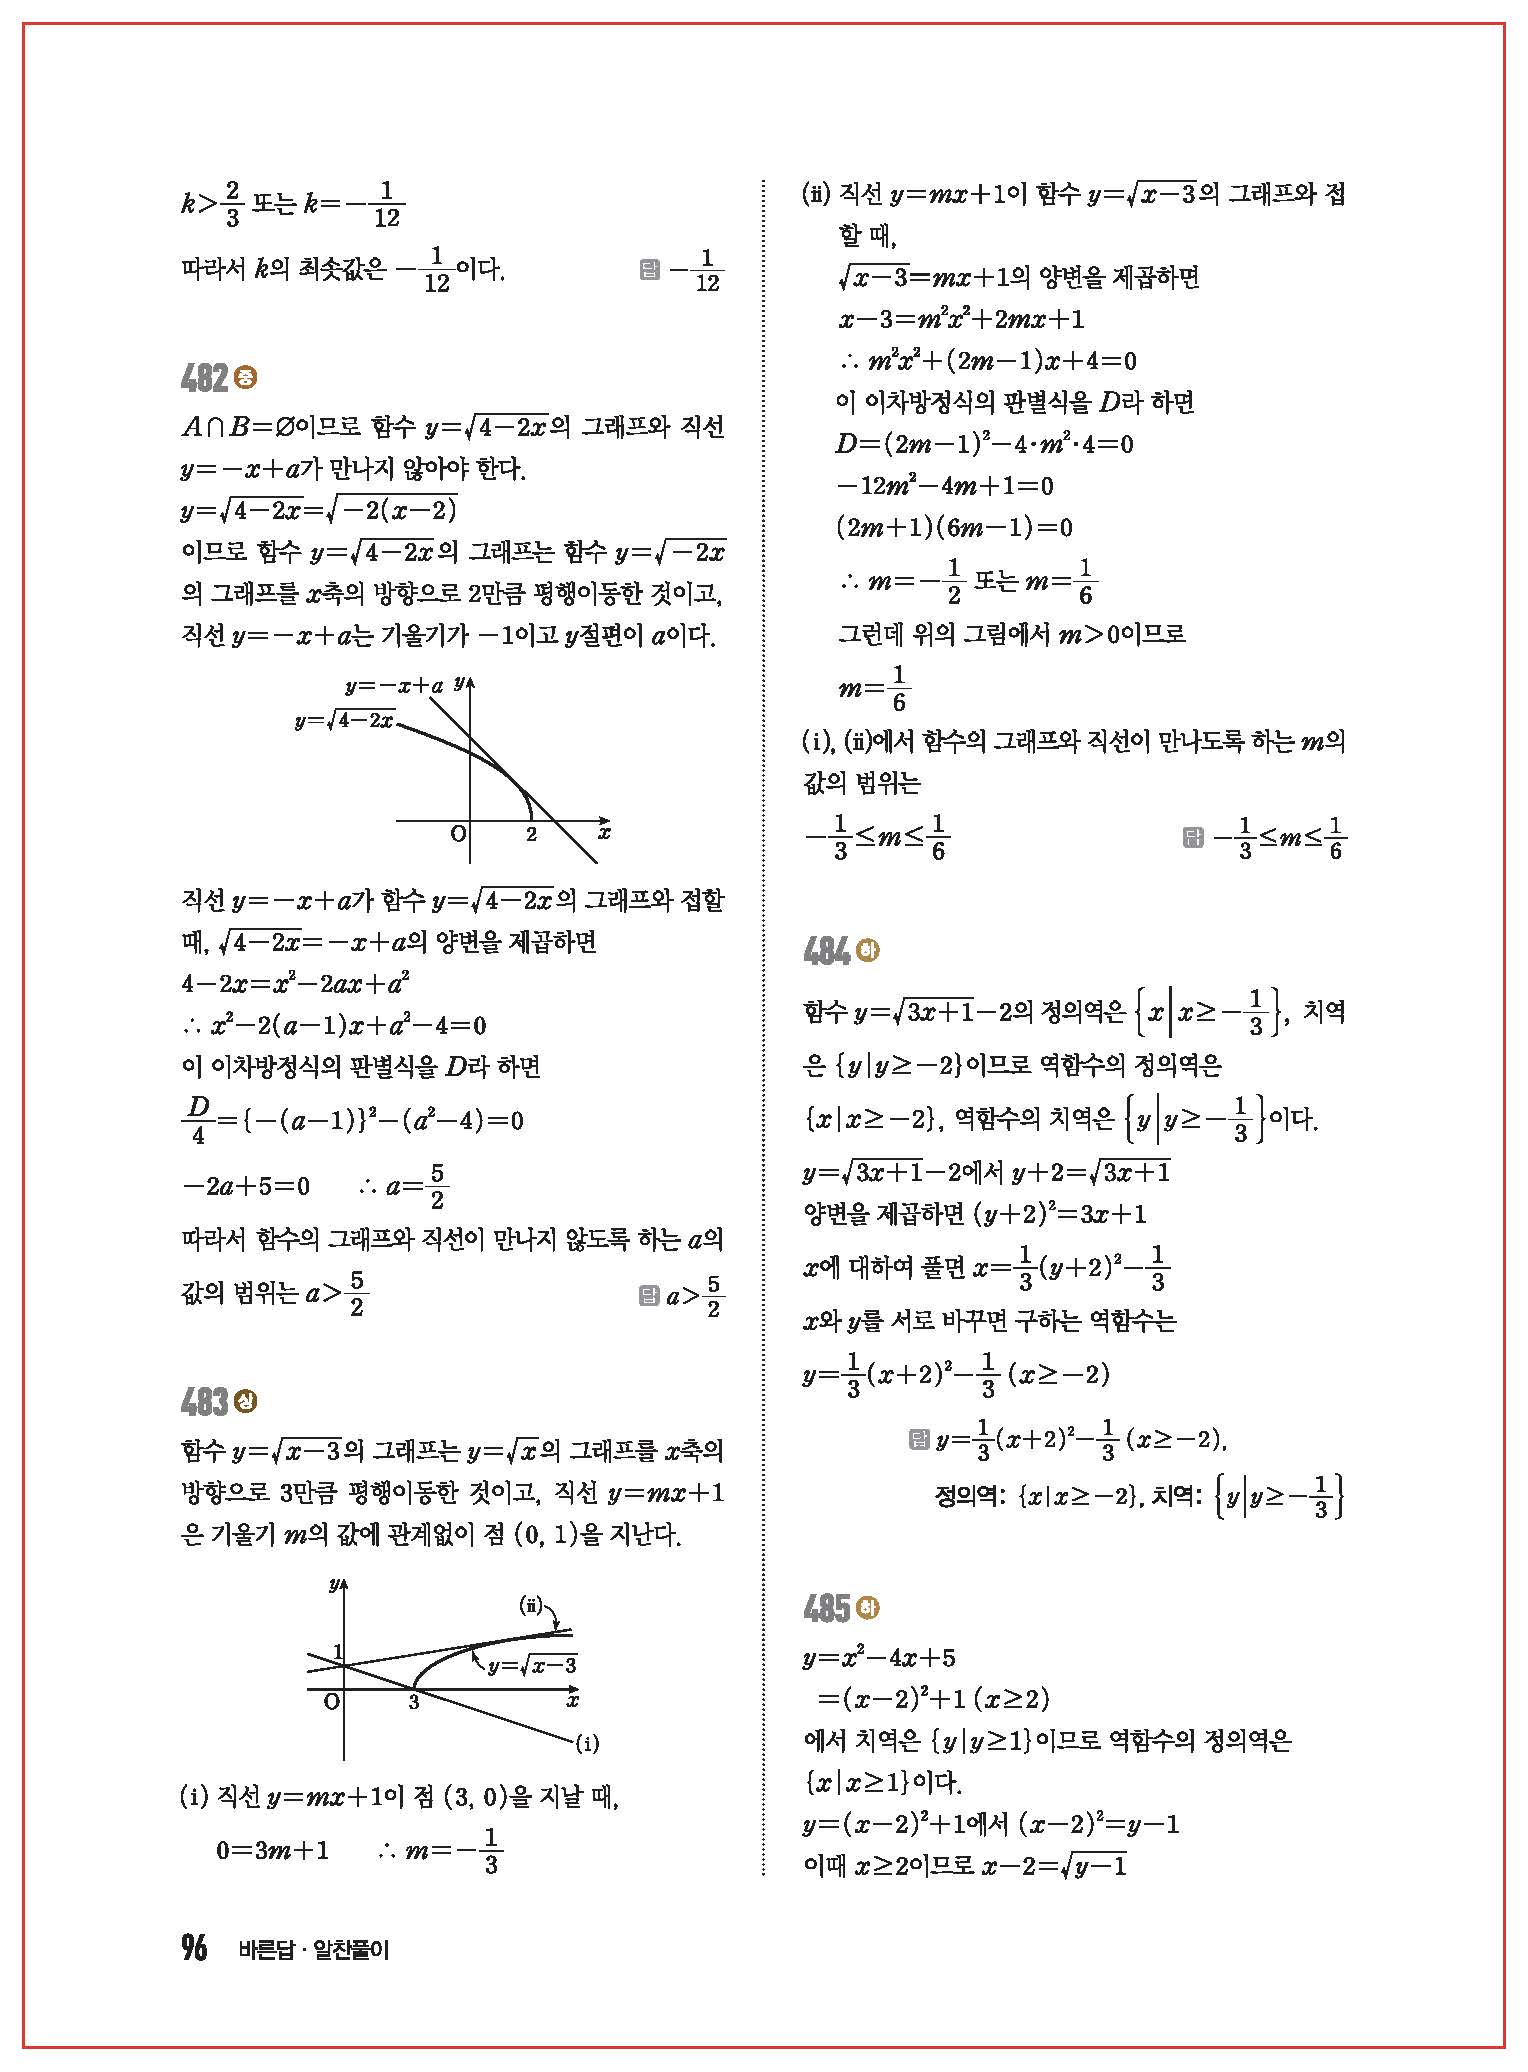 k>2/3 또는 k=-1/12
따라서 k의 최솟값은 -1/12이다. 답 -1/12
482 중
A∩B=∅이므로 함수 y=√(4-2x)의 그래프와 직선
y=-x+a가 만나지 않아야 한다.
y=√(4-2x)=√(-2(x-2))
이므로 함수 y=√(4-2x)의 그래프는 함수 y=√(-2x)
의 그래프를 x축의 방향으로 2만큼 평행이동한 것이고,
직선 y=-x+a는 기울기가 -1이고 y절편이 a이다.
y=-x+a y
y=√(4-2x)
O 2 x
직선 y=-x+a가 함수 y=√(4-2x)의 그래프와 접할
때, √(4-2x)=-x+a의 양변을 제곱하면
4-2x=x²-2ax+a²
∴ x²-2(a-1)x+a²-4=0
이 이차방정식의 판별식을 D라 하면
D/4={-(a-1)}²-(a²-4)=0
-2a+5=0 ∴ a=5/2
따라서 함수의 그래프와 직선이 만나지 않도록 하는 a의
값의 범위는 a>5/2 답 a>5/2
483 상
함수 y=√(x-3)의 그래프는 y=√x의 그래프를 x축의
방향으로 3만큼 평행이동한 것이고, 직선 y=mx+1
은 기울기 m의 값에 관계없이 점 (0, 1)을 지난다.
y
(ⅱ)
1
y=√(x-3)
O 3 x
(ⅰ)
(ⅰ) 직선 y=mx+1이 점 (3, 0)을 지날 때,
0=3m+1 ∴ m=-1/3
(ⅱ) 직선 y=mx+1이 함수 y=√(x-3)의 그래프와 접
할 때,
√(x-3)=mx+1의 양변을 제곱하면
x-3=m²x²+2mx+1
∴ m²x²+(2m-1)x+4=0
이 이차방정식의 판별식을 D라 하면
D=(2m-1)²-4·m²·4=0
-12m²-4m+1=0
(2m+1)(6m-1)=0
∴ m=-1/2 또는 m=1/6
그런데 위의 그림에서 m>0이므로
m=1/6
(ⅰ), (ⅱ)에서 함수의 그래프와 직선이 만나도록 하는 m의
값의 범위는
-1/3≤m≤1/6 답 -1/3≤m≤1/6
484 하
함수 y=√(3x+1)-2의 정의역은 {x|x≥-1/3}, 치역
은 {y|y≥-2}이므로 역함수의 정의역은
{x|x≥-2}, 역함수의 치역은 {y|y≥-1/3}이다.
y=√(3x+1)-2에서 y+2=√(3x+1)
양변을 제곱하면 (y+2)²=3x+1
x에 대하여 풀면 x=1/3(y+2)²-1/3
x와 y를 서로 바꾸면 구하는 역함수는
y=1/3(x+2)²-1/3 (x≥-2)
답 y=1/3(x+2)²-1/3 (x≥-2),
정의역: {x|x≥-2}, 치역: {y|y≥-1/3}
485 하
y=x²-4x+5
=(x-2)²+1 (x≥2)
에서 치역은 {y|y≥1}이므로 역함수의 정의역은
{x|x≥1}이다.
y=(x-2)²+1에서 (x-2)²=y-1
이때 x≥2이므로 x-2=√(y-1)
96 바른답·알찬풀이